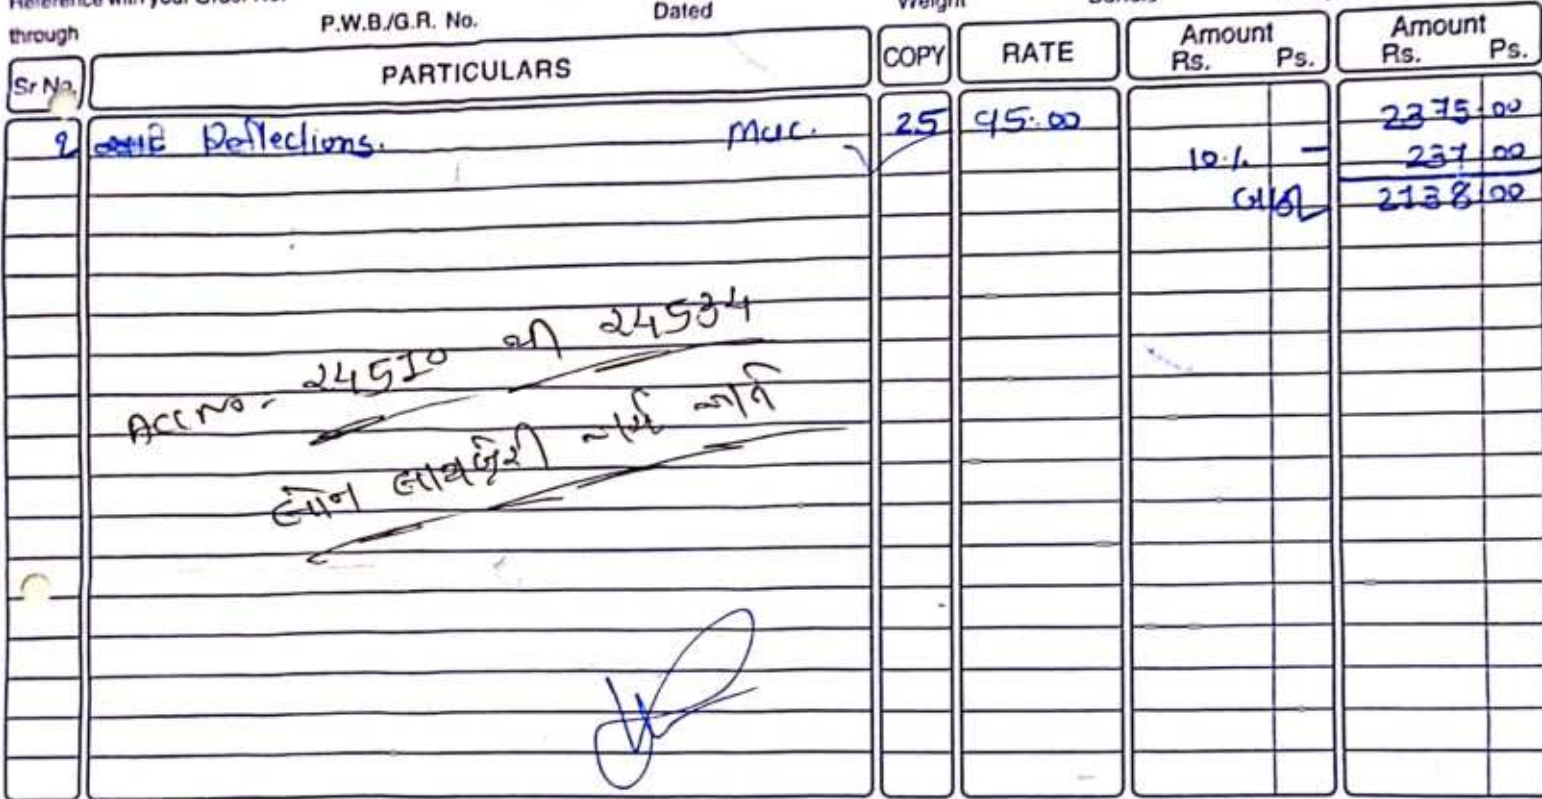 Reference with your Order No.
through P.W.B./G.R. No. Dated Weight
Sr No. PARTICULARS COPY RATE Amount Rs. Ps. Amount Rs. Ps.
૧ Reflections. Mac. 25 95.00 2375.00
10·/. — 237 00
2138 00
ACC No. 24510 થી 24534
લોન લાયબ્રેરી